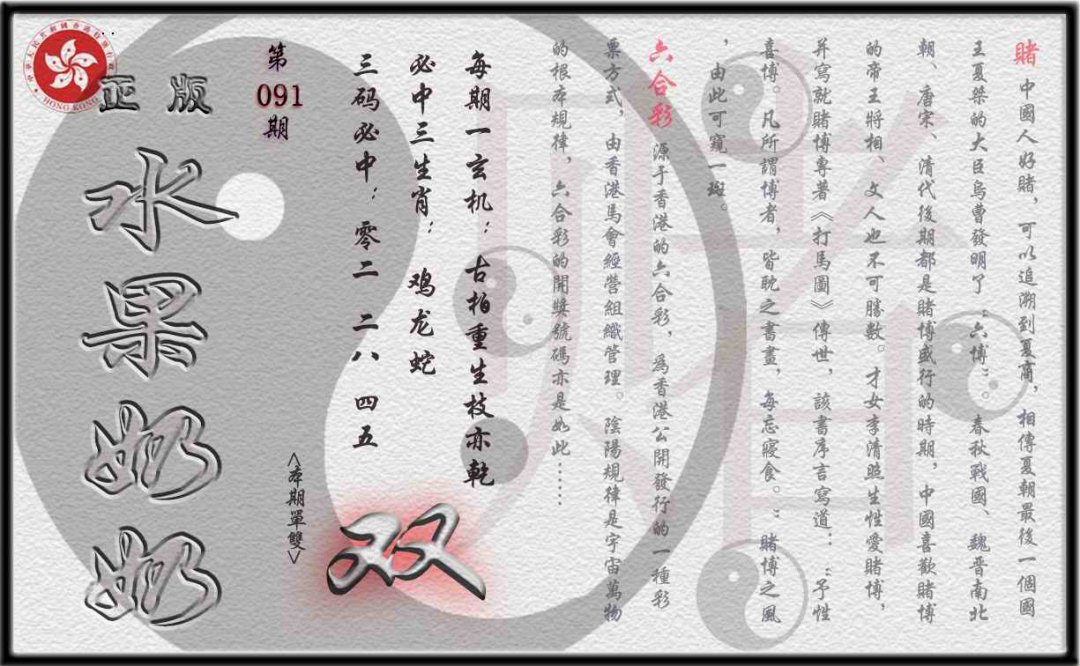 賭 中國人好賭，可以追溯到夏商，相傳夏朝最後一個國
王夏桀的大臣烏曹發明了“六博”。春秋戰國、魏晋南北
朝、唐宋、清代後期都是賭博盛行的時期，中國喜歡賭博
的帝王將相、文人也不可勝數。才女李清照生性愛賭博，
并寫就賭博專著《打馬圖》傳世，該書序言寫道：“予性
喜博。凡所謂博者，皆耽之書畫，每忘寢食。”賭博之風
，由此可窺一斑。
六合彩 源于香港的六合彩，為香港公開發行的一種彩
票方式，由香港馬會經營組織管理。陰陽規律是宇宙萬物
的根本規律，六合彩的開獎號碼亦是如此……
每期一玄机：古柏重生枝亦乾
必中三生肖：鸡龙蛇
三码必中：零二 二八 四五
双
<本期單雙>
第
091
期
正版
水果奶奶
HONG KONG